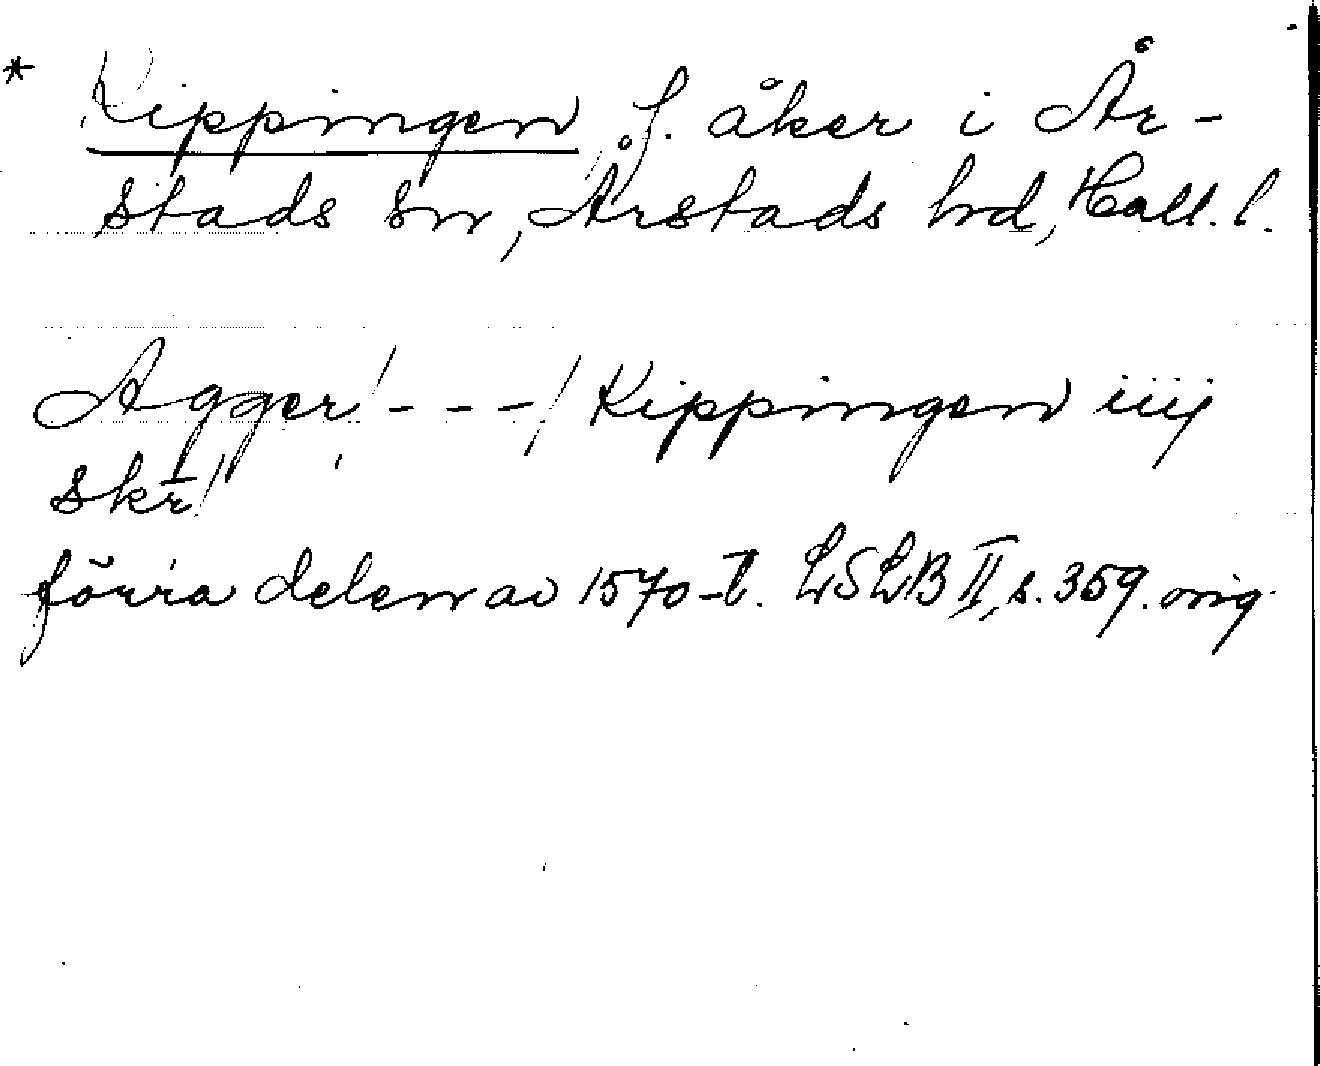 * Kippingen, f. åker i År-
stads sn, Årstads hd, Hall. l.
Agger/---/Kippingen iiij
skr/
förra delen av 1570-t. LSLB II, s. 359. orig.